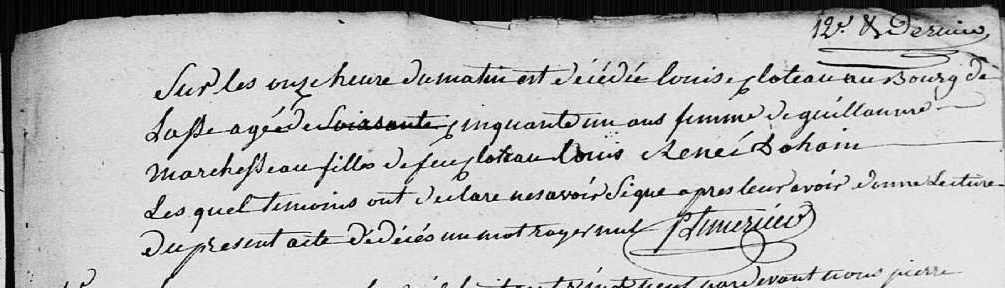 12e & Dernier
Sur les onze heure du matin est décédée louise cloteau au Bourg de
Lasse agée de Soixante cinquante un ans femme de guillaume
marchesseau fille de feu cloteau Louis René Dohain
Les quel temoins ont declare ne savoir Signe apres leur avoir donne Lecture
du present acte de décés un mot rayer nul
huit cent pardevant nous pierre